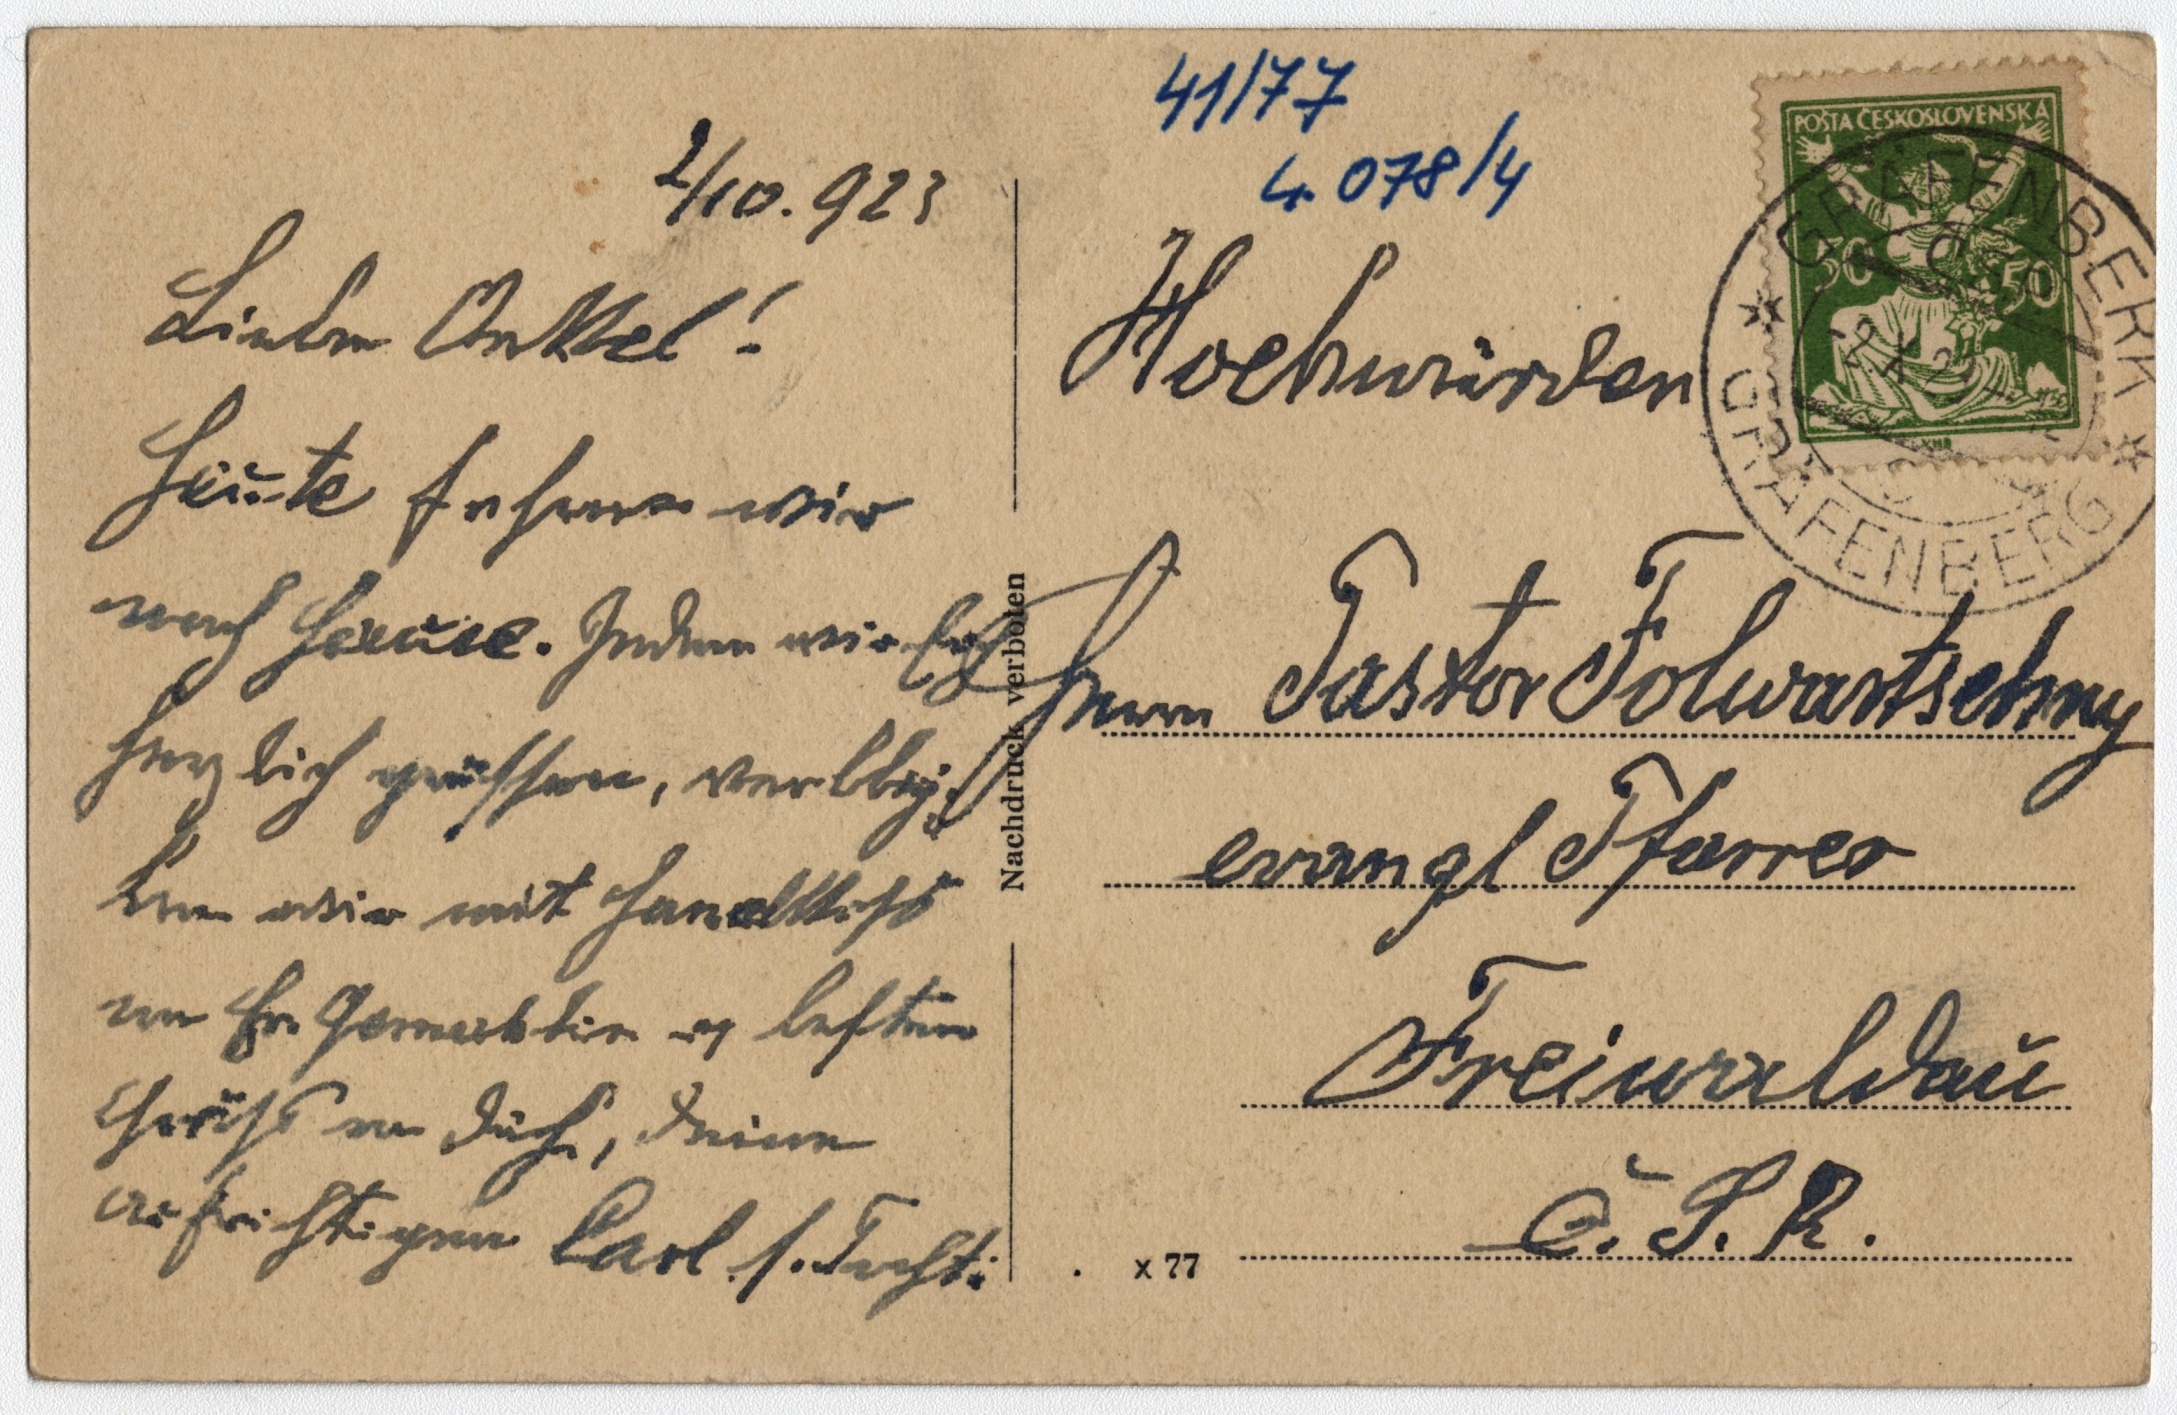 2/10. 923
Lieber Onkel!
Heute fahren wir
nach Hause. Indem wir Euch
herzlich grüssen, verblei-
ben wir mit Handkuss
an Fr. Gemahlin u besten
Gruss an Dich, Deine
aufrichtigen Carl s. Tochti
Nachdruck verboten
x 77
41/77
4.078/4
Hochwürden
Herrn Pastor Folwartschny
evangl Pfarrer
Freiwaldau
Č. S. R.
POŠTA ČESKOSLOVENSKÁ
50 50
GRÄFENBERK
GRÄFENBERG